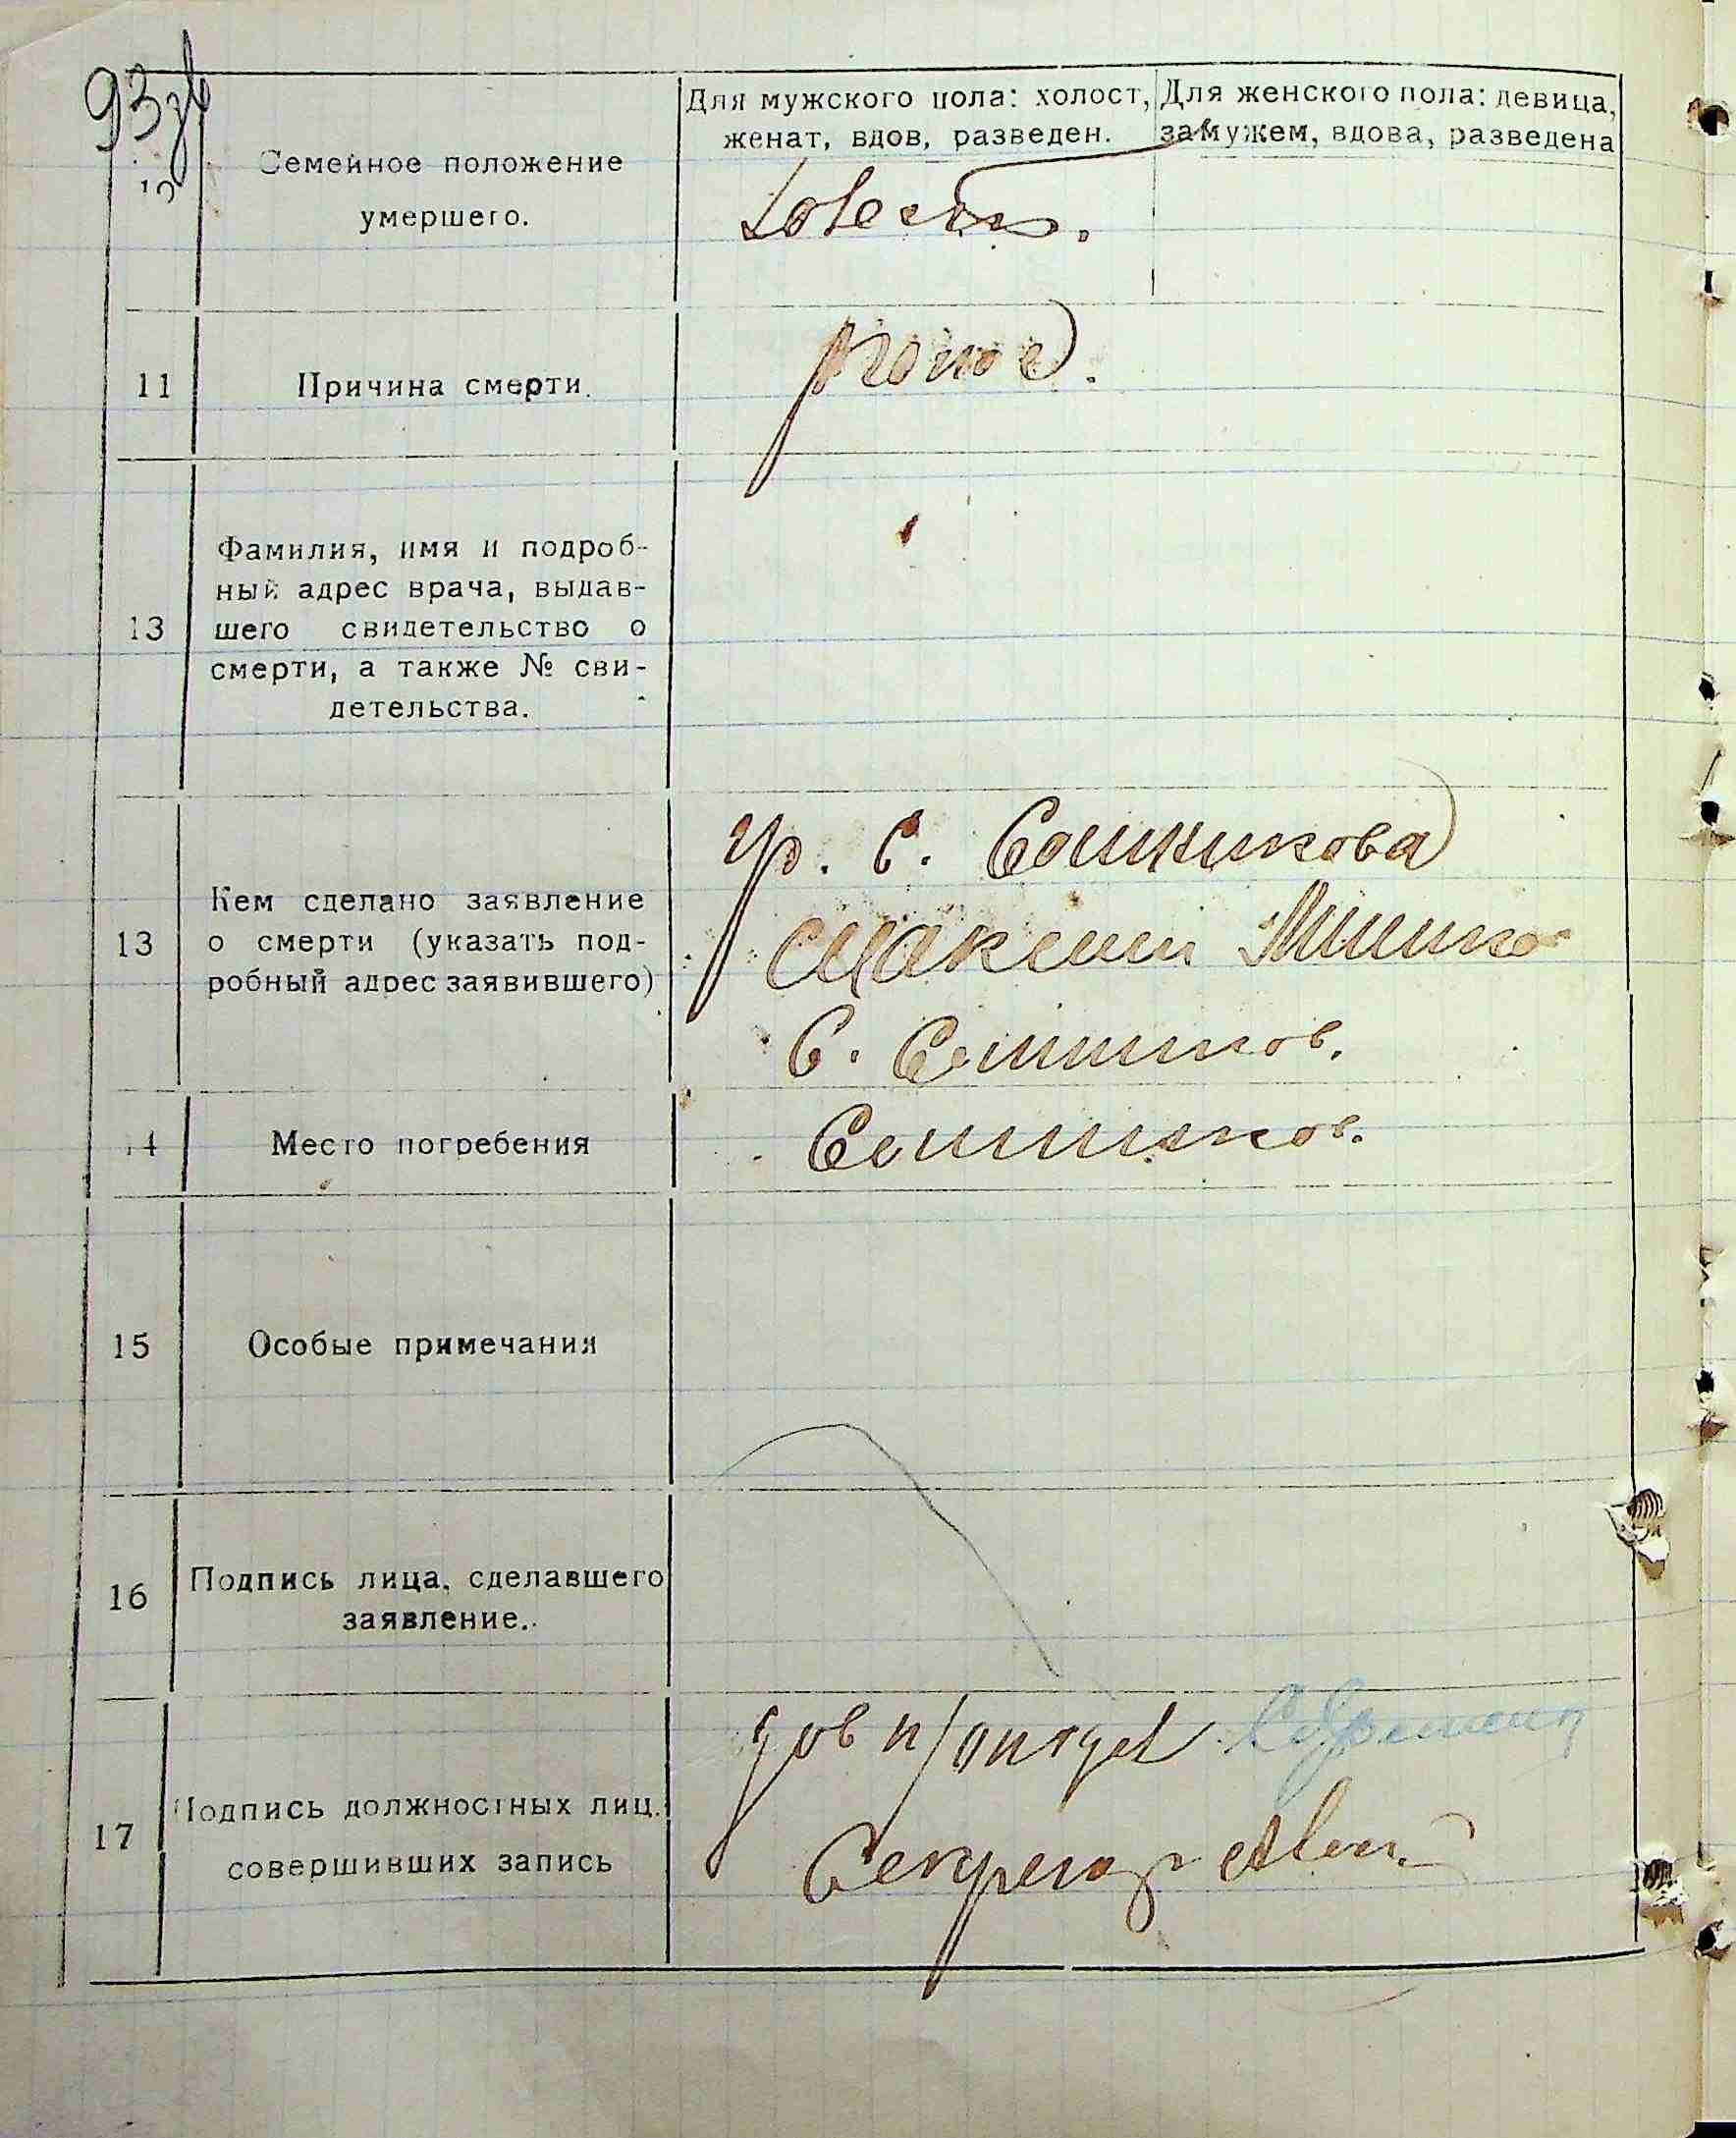 93
Для мужского пола: холост,
женат, вдов, разведен.
Для женского пола: девица,
замужем, вдова, разведена
Семейное положение
умершего.
11
Причина смерти.
13
Фамилия, имя и подроб-
ный адрес врача, выдав-
шего свидетельство о
смерти, а также № сви-
детельства.
13
Кем сделано заявление
о смерти (указать под-
робный адрес заявившего)
гр. С. Сошникова
Максим
С. Сошников.
14
Место погребения
Сошников.
15
Особые примечания
16
Подпись лица, сделавшего
заявление.
17
Подпись должностных лиц.
совершивших запись
Секретар